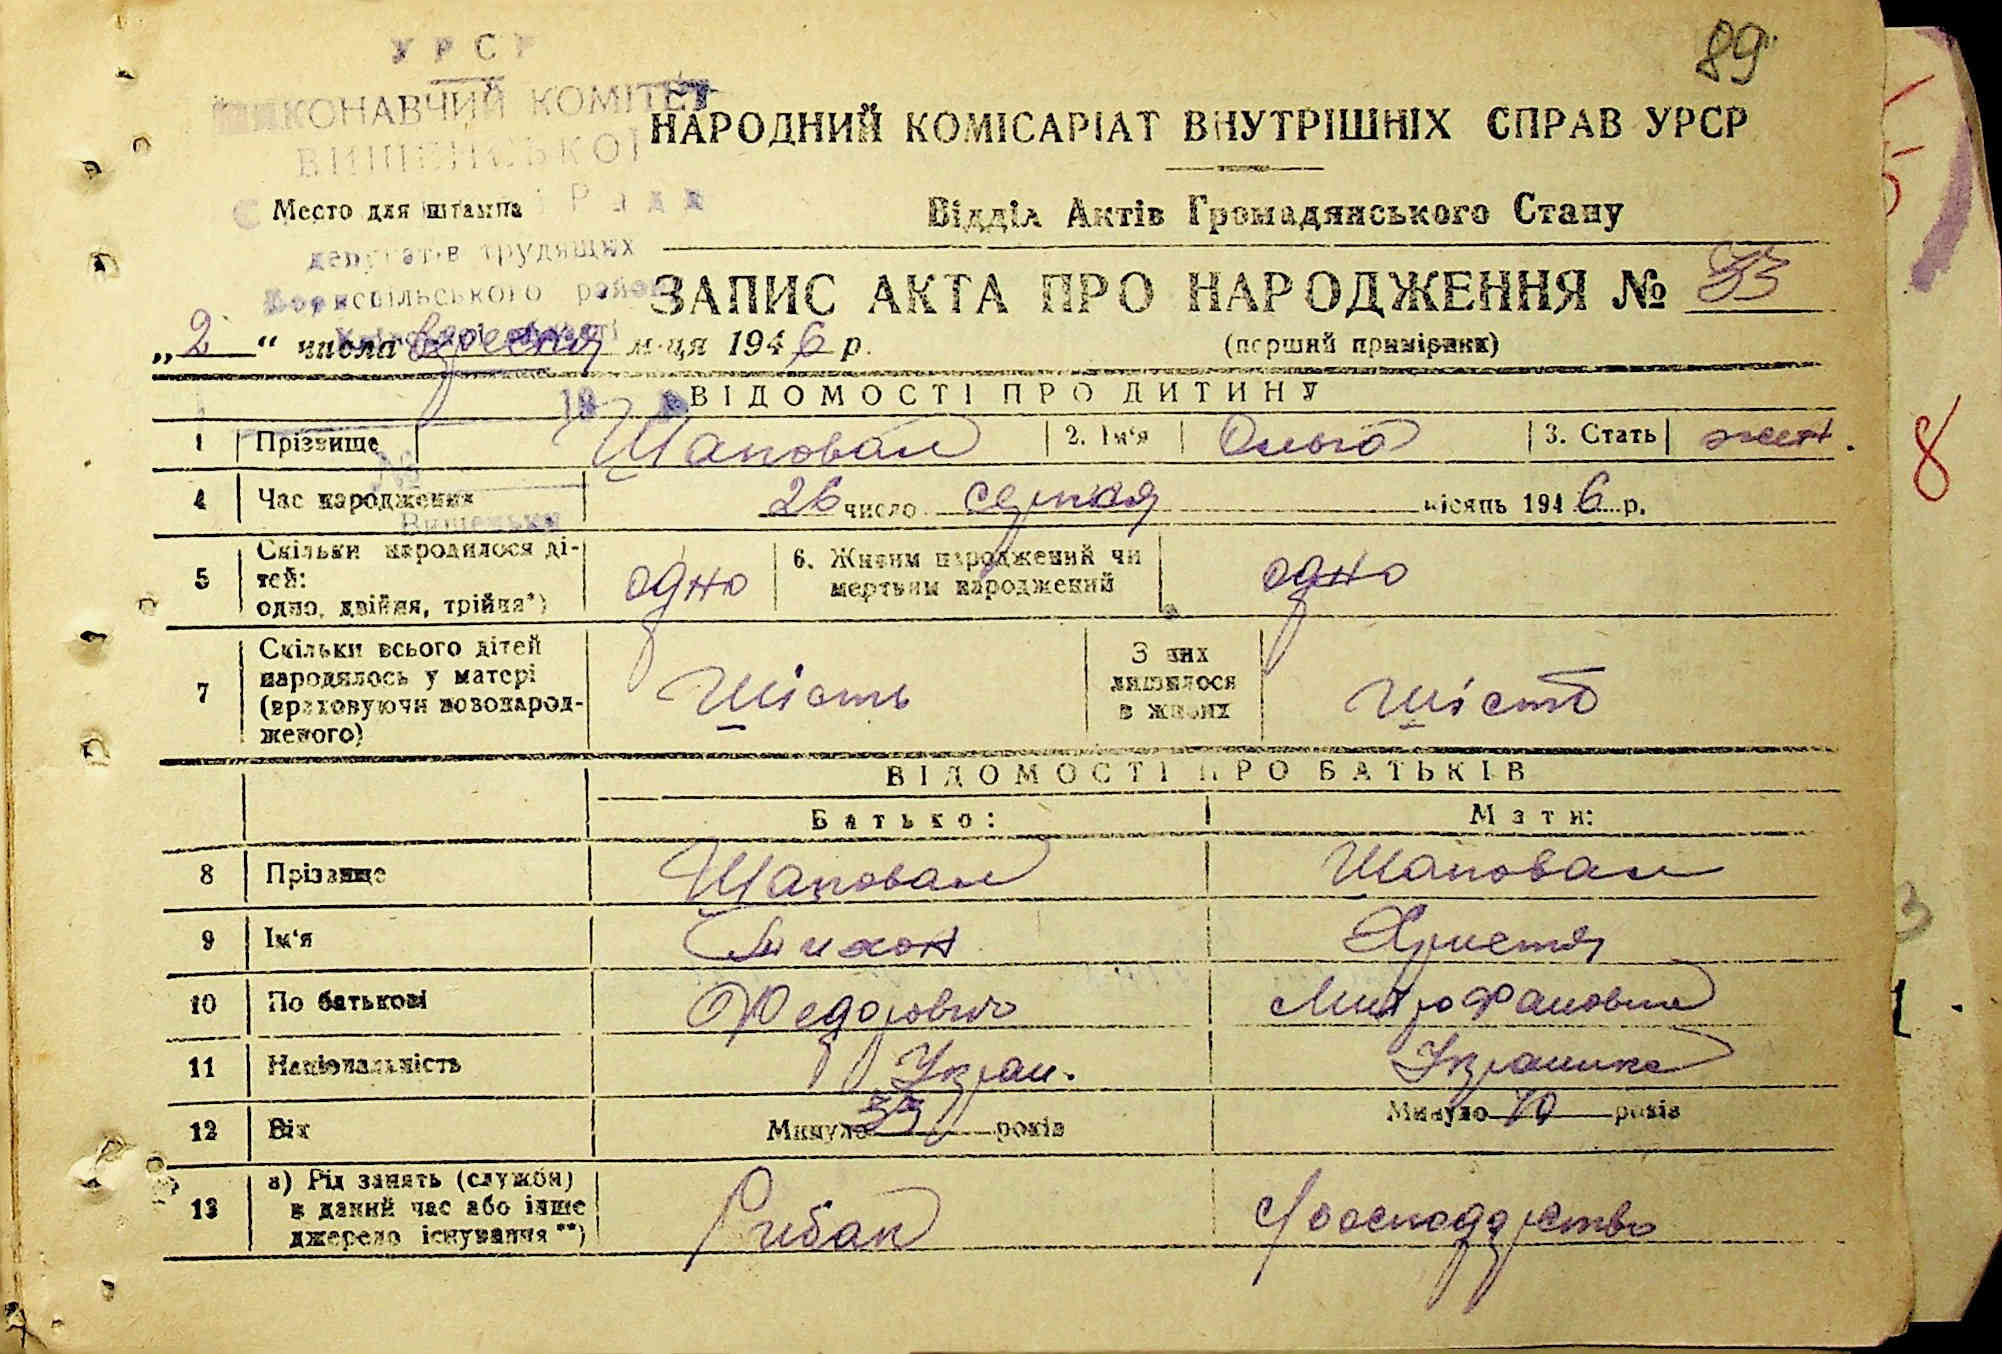 89
УРСР
ВИКОНАВЧИЙ КОМІТЕТ
НАРОДНИЙ КОМІСАРІАТ ВНУТРІШНІХ СПРАВ УРСР
Место для штампа
Відділ Актів Громадянського Стану
депутатів трудящих
Бориспільського району
ЗАПИС АКТА ПРО НАРОДЖЕННЯ № 53
„2“ числа вересня м-ця 1946 р.
(перший примірник)
ВІДОМОСТІ ПРО ДИТИНУ
1 Прізвище Шаповал 2. Ім'я Ольга 3. Стать жін.
4 Час народження 26 число серпня місяць 1946 р.
Вишеньки
5 Скільки народилося ді-
тей:
одно, двійня, трійня*) одно 6. Живим народжений чи
мертвим народжений одно
7 Скільки всього дітей
народилось у матері
(враховуючи новонарод-
женого) Шість З них
лишилося
в живих Шість
ВІДОМОСТІ ПРО БАТЬКІВ
Батько: Мати:
8 Прізвище Шаповал Шаповал
9 Ім'я Тихон Христя
10 По батькові Федорович Митрофановна
11 Національність Украї. Українка
12 Вік Минуло років Минуло 40 років
13 а) Рід занять (служби)
в даний час або інше
джерело існування**) Рибак Госсподарство
8